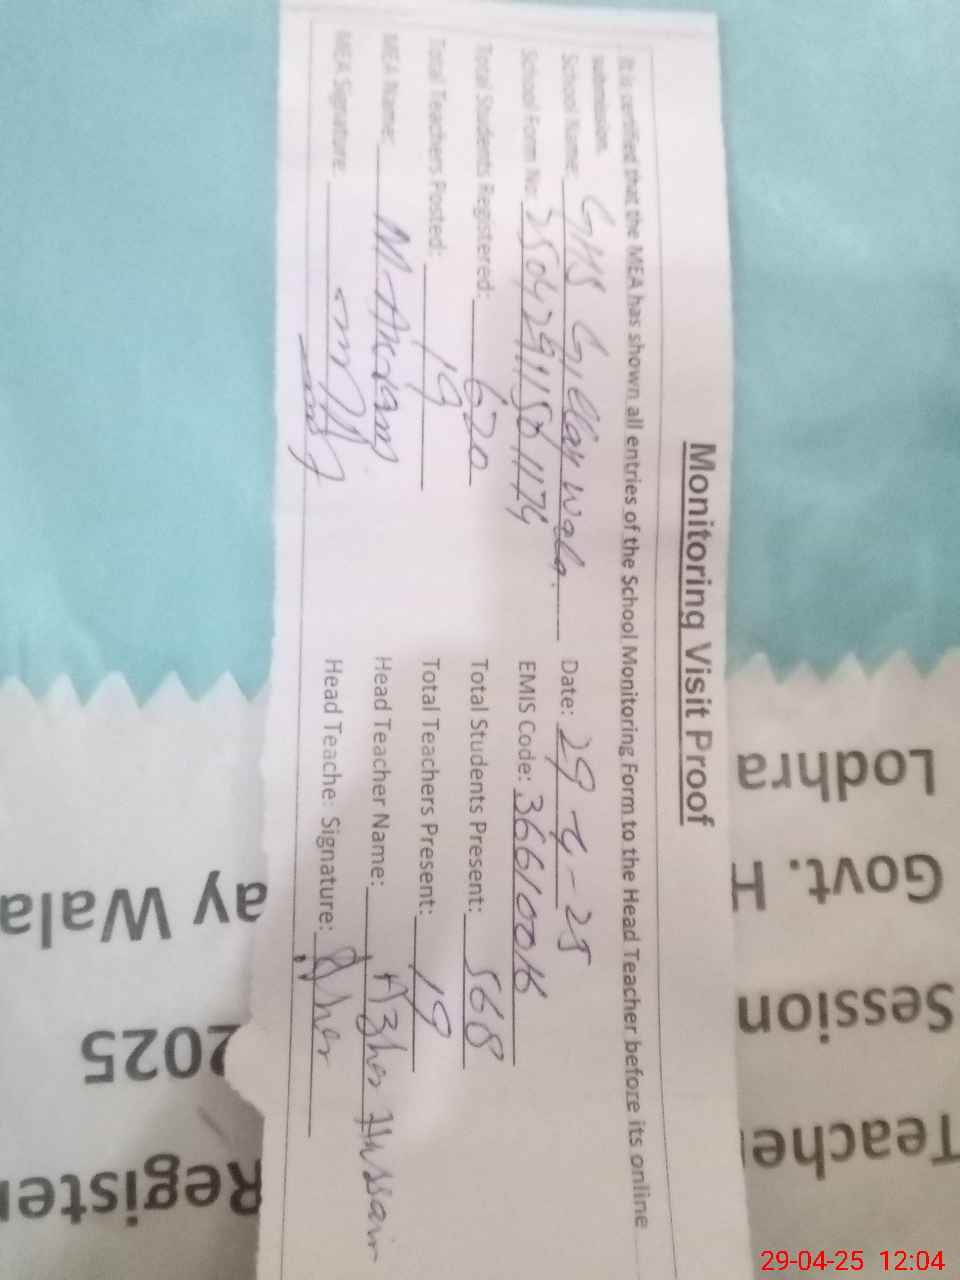 Monitoring Visit Proof
It is certified that the MEA has shown all entries of the School Monitoring Form to the Head Teacher before its online
submission.
School Name: GHS Gillay wala. Date: 29-4-25
School Form No: EMIS Code: 36610016
Total Students Registered: 620 Total Students Present: 568
Total Teachers Posted: 19 Total Teachers Present: 19
MEA Name: M. Akram Head Teacher Name: Azher Hussain
MEA Signature: Head Teache: Signature: Azher
Register
Teache
2025
Session
ay Wala
Govt. H
Lodhra
29-04-25 12:04